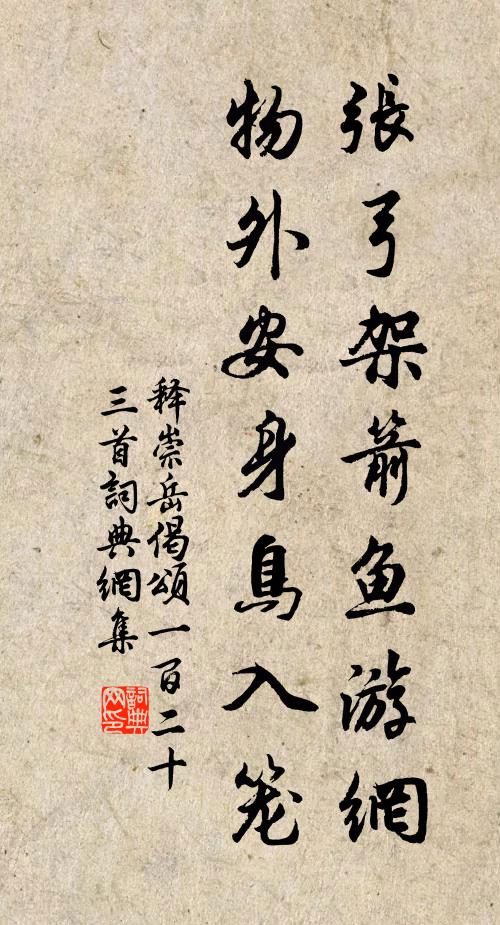 張弓架箭魚游網
物外安身鳥入笼
释崇岳偈頌一百二十
三首詞典網集
詞典网印